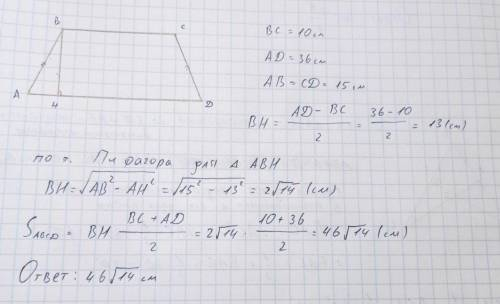 B C
A H D
BC = 10 см
AD = 36 см
AB = CD = 15 см
BH = \frac{AD - BC}{2} = \frac{36 - 10}{2} = 13 (см)
по т. Пифагора для Δ ABH
BH = \sqrt{AB^2 - AH^2} = \sqrt{15^2 - 13^2} = 2\sqrt{14} (см)
S_{ABCD} = BH \frac{BC + AD}{2} = 2\sqrt{14} \cdot \frac{10 + 36}{2} = 46\sqrt{14} (см)
Ответ: 46\sqrt{14} см